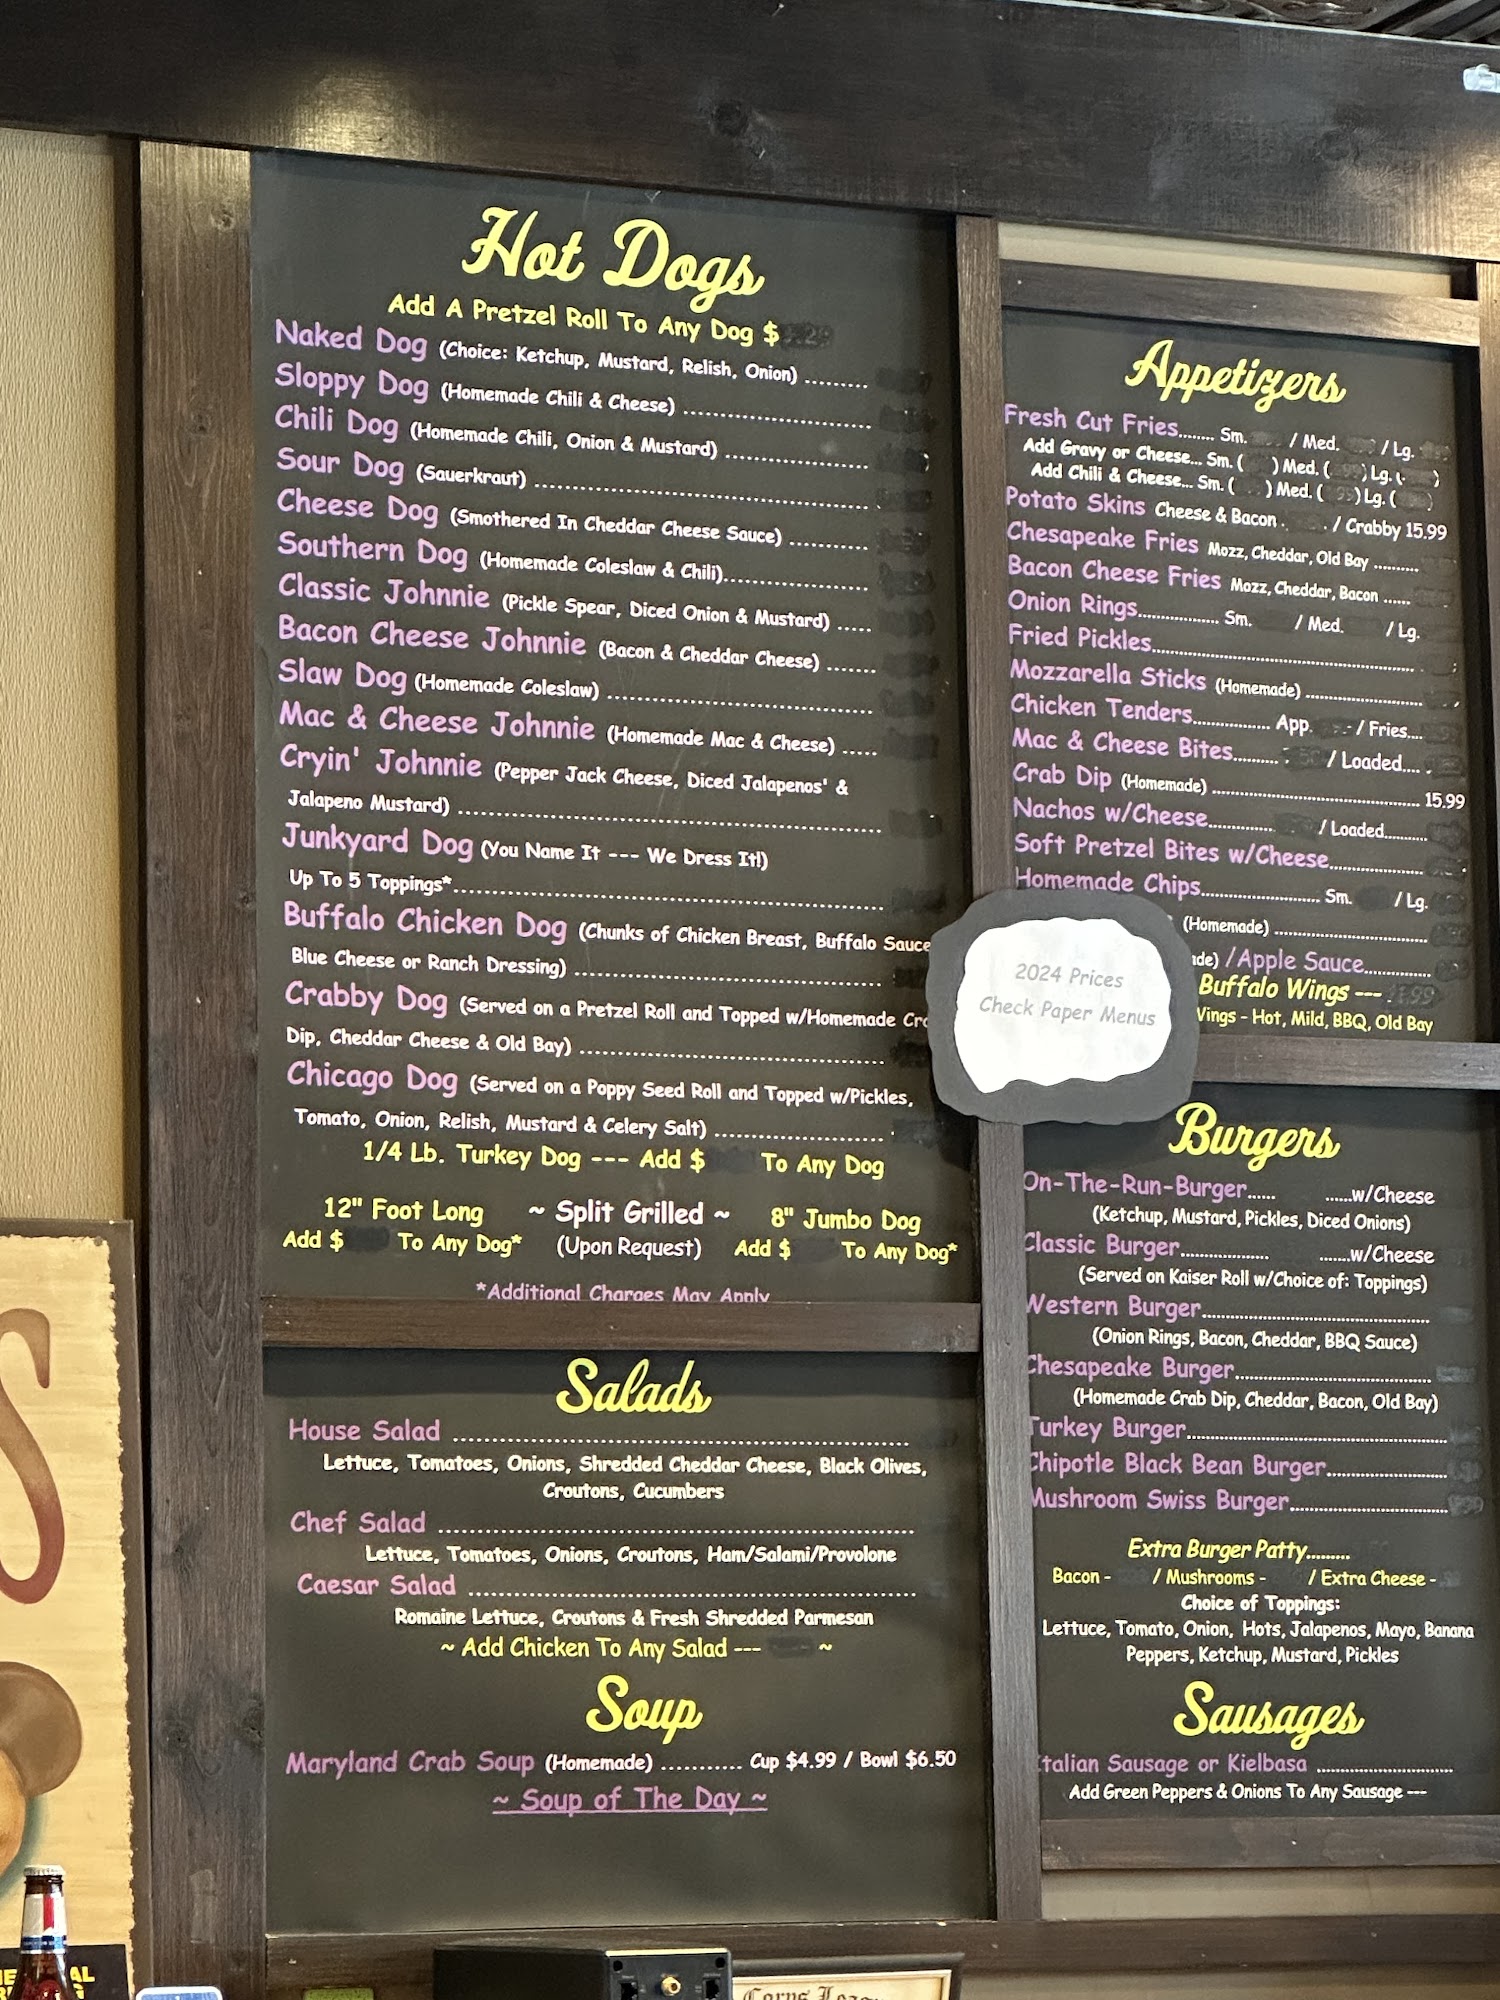 Hot Dogs
Add A Pretzel Roll To Any Dog $
Naked Dog (Choice: Ketchup, Mustard, Relish, Onion) .........
Sloppy Dog (Homemade Chili & Cheese) ...........................
Chili Dog (Homemade Chili, Onion & Mustard) .....................
Sour Dog (Sauerkraut) ................................................
Cheese Dog (Smothered In Cheddar Cheese Sauce) ...........
Southern Dog (Homemade Coleslaw & Chili).....................
Classic Johnnie (Pickle Spear, Diced Onion & Mustard) .....
Bacon Cheese Johnnie (Bacon & Cheddar Cheese) .......
Slaw Dog (Homemade Coleslaw) ......................................
Mac & Cheese Johnnie (Homemade Mac & Cheese) .....
Cryin' Johnnie (Pepper Jack Cheese, Diced Jalapenos' &
Jalapeno Mustard) ............................................................
Junkyard Dog (You Name It --- We Dress It!)
Up To 5 Toppings*.............................................................
Buffalo Chicken Dog (Chunks of Chicken Breast, Buffalo Sauce
Blue Cheese or Ranch Dressing) ...........................................
Crabby Dog (Served on a Pretzel Roll and Topped w/Homemade Cr
Dip, Cheddar Cheese & Old Bay) ...........................................
Chicago Dog (Served on a Poppy Seed Roll and Topped w/Pickles,
Tomato, Onion, Relish, Mustard & Celery Salt) ........................
1/4 Lb. Turkey Dog --- Add $ To Any Dog
12" Foot Long ~ Split Grilled ~ 8" Jumbo Dog
Add $ To Any Dog* (Upon Request) Add $ To Any Dog*
*Additional Charges May Apply
Salads
House Salad ................................................................
Lettuce, Tomatoes, Onions, Shredded Cheddar Cheese, Black Olives,
Croutons, Cucumbers
Chef Salad ..................................................................
Lettuce, Tomatoes, Onions, Croutons, Ham/Salami/Provolone
Caesar Salad ..............................................................
Romaine Lettuce, Croutons & Fresh Shredded Parmesan
~ Add Chicken To Any Salad --- ~
Soup
Maryland Crab Soup (Homemade) ........... Cup $4.99 / Bowl $6.50
~ Soup of The Day ~
Appetizers
Fresh Cut Fries........ Sm. / Med. / Lg.
Add Gravy or Cheese... Sm. ( ) Med. ( ) Lg. ( )
Add Chili & Cheese... Sm. ( ) Med. ( ) Lg. ( )
Potato Skins Cheese & Bacon . . / Crabby 15.99
Chesapeake Fries Mozz, Cheddar, Old Bay ..........
Bacon Cheese Fries Mozz, Cheddar, Bacon ......
Onion Rings.................. Sm. / Med. / Lg.
Fried Pickles..........................................................
Mozzarella Sticks (Homemade) ..........................
Chicken Tenders................. App. / Fries....
Mac & Cheese Bites.......... / Loaded....
Crab Dip (Homemade) .............................................. 15.99
Nachos w/Cheese............... / Loaded..........
Soft Pretzel Bites w/Cheese.....................
Homemade Chips........................... Sm. / Lg.
(Homemade) ..................................
/Apple Sauce...............
Buffalo Wings ---
Wings - Hot, Mild, BBQ, Old Bay
2024 Prices
Check Paper Menus
Burgers
On-The-Run-Burger...... ......w/Cheese
(Ketchup, Mustard, Pickles, Diced Onions)
Classic Burger.................. .......w/Cheese
(Served on Kaiser Roll w/Choice of: Toppings)
Western Burger..............................................
(Onion Rings, Bacon, Cheddar, BBQ Sauce)
Chesapeake Burger........................................
(Homemade Crab Dip, Cheddar, Bacon, Old Bay)
Turkey Burger.....................................................
Chipotle Black Bean Burger.........................
Mushroom Swiss Burger................................
Extra Burger Patty.........
Bacon - / Mushrooms - / Extra Cheese -
Choice of Toppings:
Lettuce, Tomato, Onion, Hots, Jalapenos, Mayo, Banana
Peppers, Ketchup, Mustard, Pickles
Sausages
Italian Sausage or Kielbasa ...........................
Add Green Peppers & Onions To Any Sausage ---